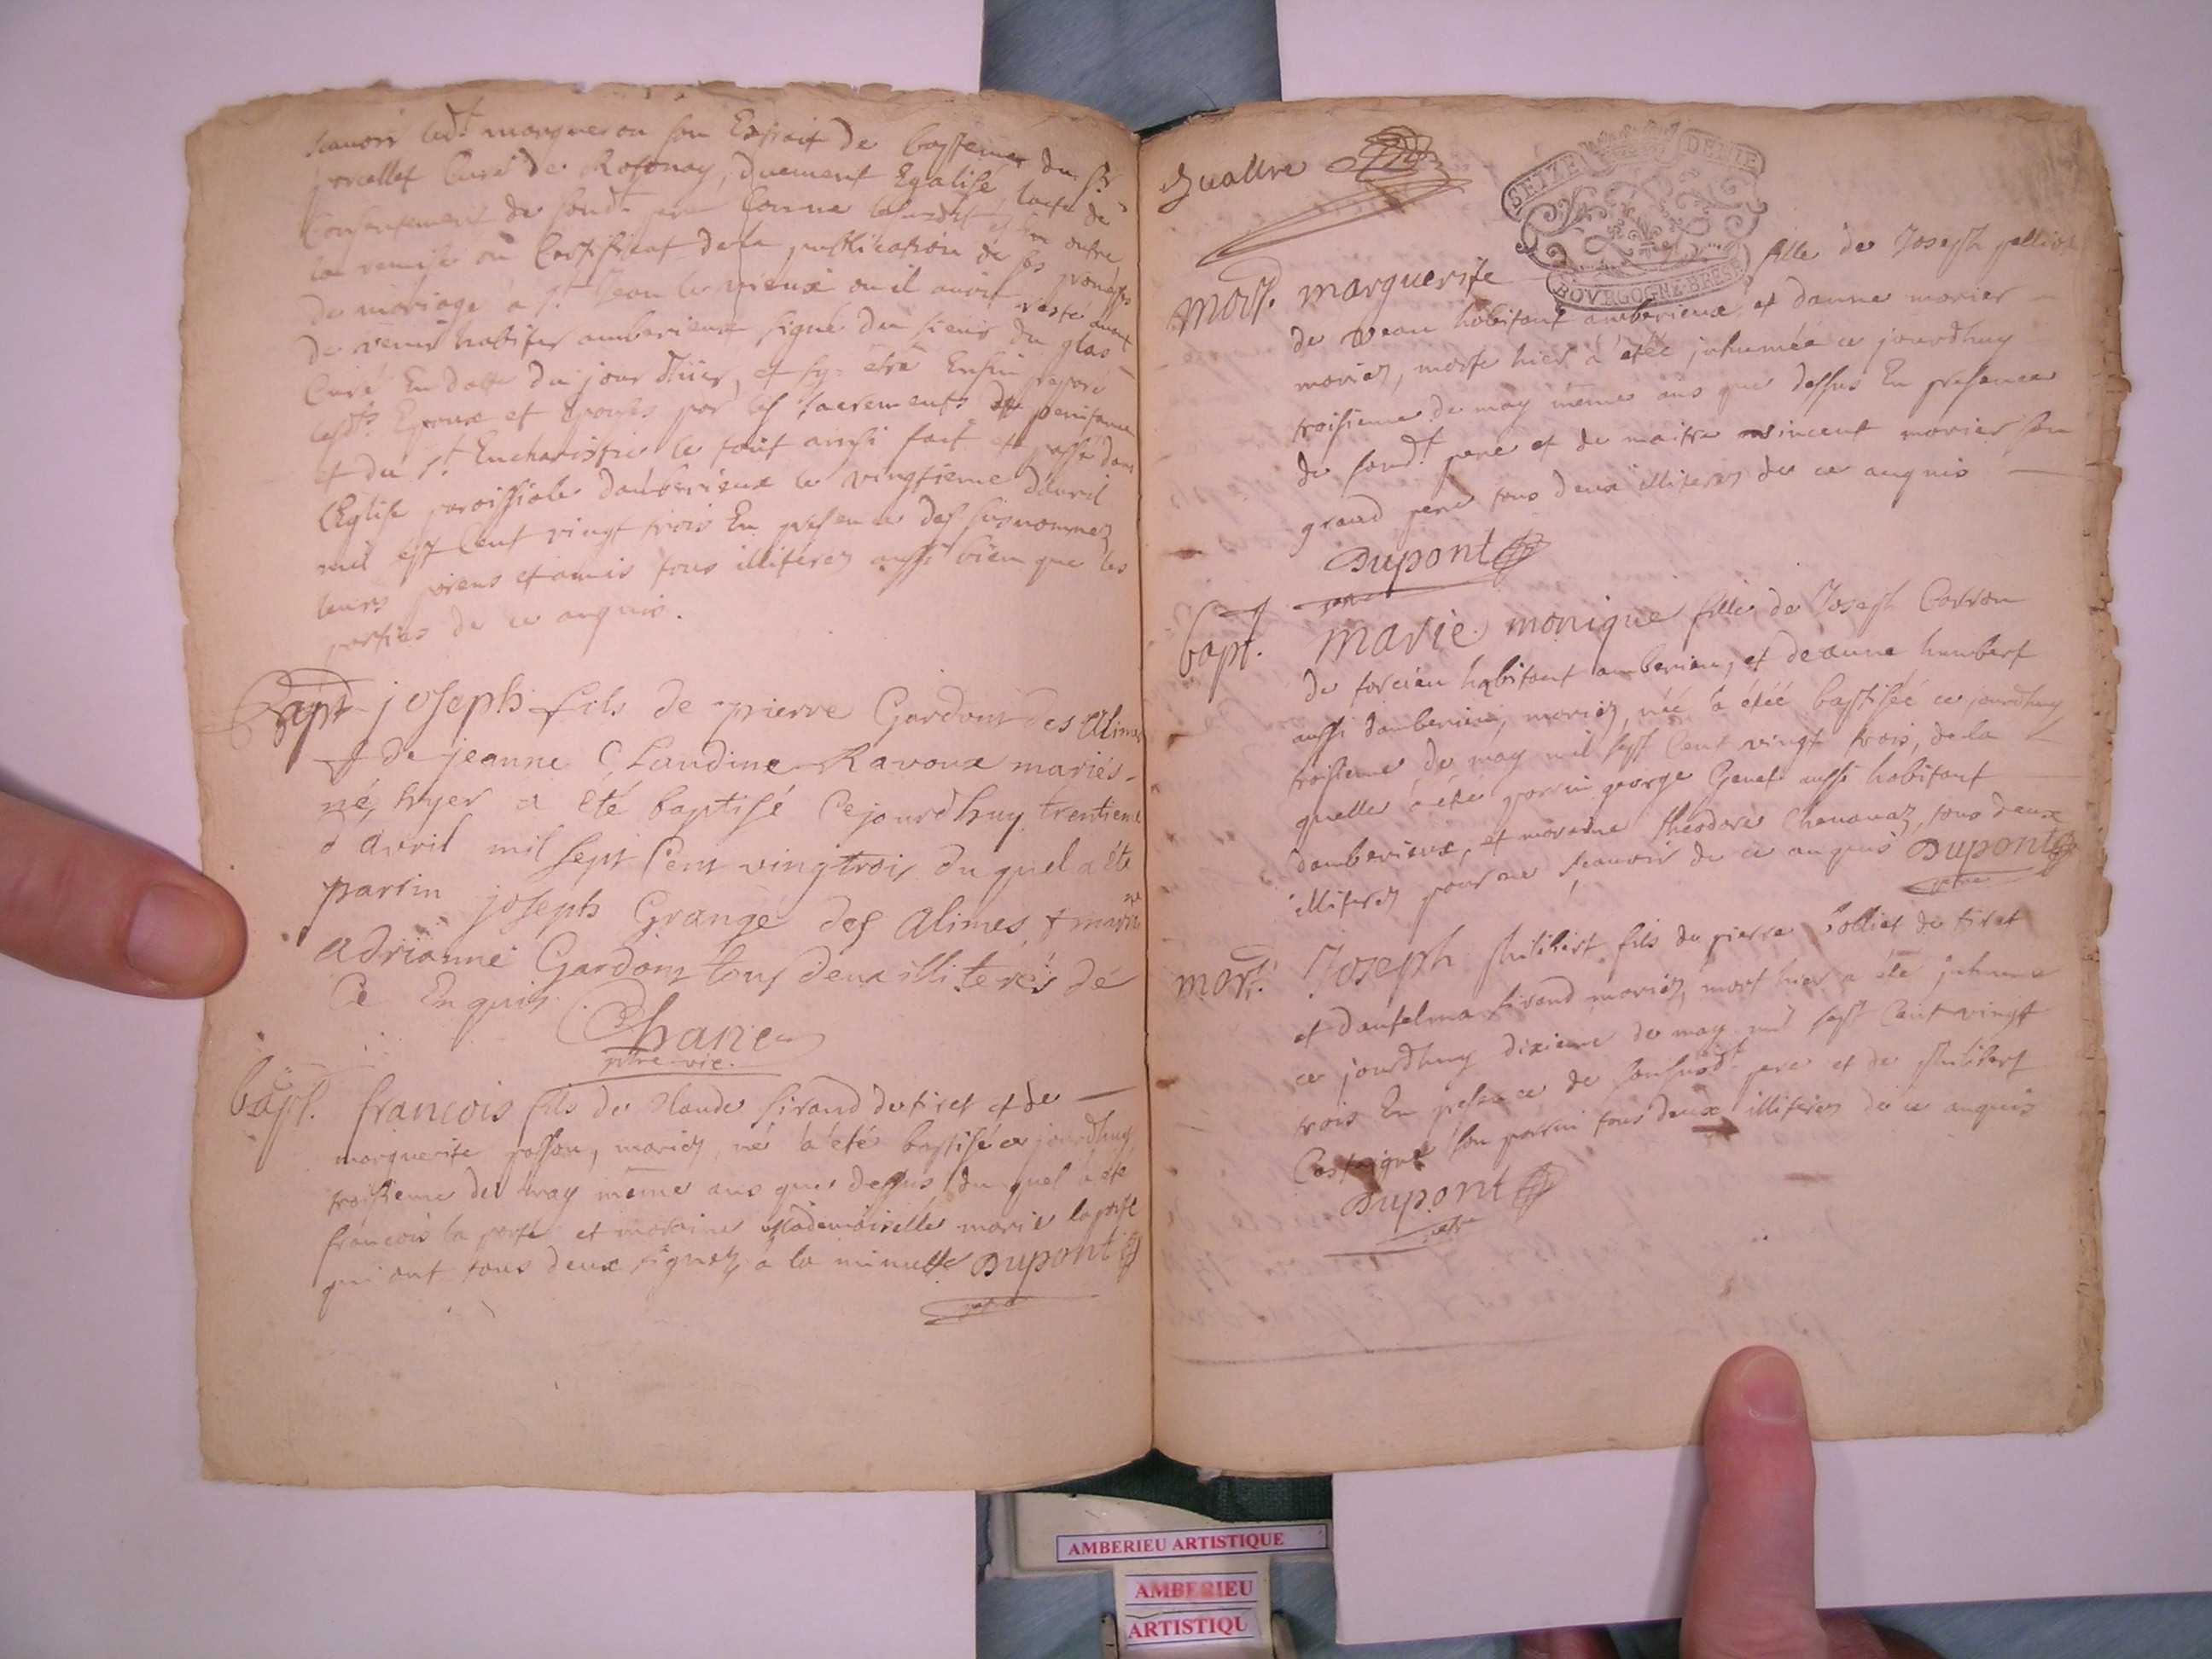 scavoir led.t margueron son Extrait de baptesme du Sr
porcellet Curé de Rosonay, duement Egalisé lacte de
Consentement de sond.t pere Comme et en outre
la remise du Certificat de la publication de ses
de mariage a St Jean le vieux ou il avoit resté avant
de venir habiter amberieux signé du sieur du glas
Curé En datte du jour d'hier, et sy etre Enfin preparé
lesd.ts Epoux et Epouse par les sacrements de penitence
et du St Eucharistie le tout ainsi fait et passé dans
l'Eglise paroissiale d'amberieux le vingtieme d'avril
mil sept Cent vingt trois En presence des susnommez
leurs parens et amis tous illiterez aussi bien que les
parties de ce anquis.
Bapt joseph fils de pierre Gardont des Alimes
& de jeanne Claudine Ravoux mariés
né hyer a eté baptisé Cejourdhuy trentieme
d'avril mil sept Cent vingt trois du quel a été
parrin joseph Grangé des Alimes & marne
adrianne Gardont tous deux illiterés de
Ce Enquis
Chane
ptre vic.
bapt. francois fils de Claude sirand de tiret et de
marguerite passon, mariez, né a eté baptisé ce jourdhuy
troisieme de may meme ans que dessus du quel a été
francois la porte et maraine Mademoiselle marie laporte
qui ont tous deux signez a la minutte Dupont
Quattre
SEIZE DENIE
BOVRGOGNE BRESE
mort. marguerite fille de Joseph
de habitant amberieux et d'anne morier
mariez, morte hier a etée inhumée ce jourdhuy
troisieme de may meme ans que dessus En presence
de sond.t pere et de maitre vincent morier son
grand pere tous deux illiterez de ce anquis
Dupont
bapt. marie monique fille de Joseph Carron
de torcieu habitant amberieu, et de anne humbert
aussi d'amberieu, mariez, née a étée baptisée ce jourdhuy
troisieme de may mil sept Cent vingt trois, de la
quelle a été parrin george Genet aussi habitant
d'amberieux, et maraine theodore Chananaz, tous deux
illiterez pour ne scavoir de ce anquis Dupont
mort. Joseph philibert fils de pierre bolliet de tiret
et d'antelma sirand mariez, mort hier a été inhumé
ce jourdhuy dixieme de may mil sept Cent vingt
trois En presence de sonsusd.t pere et de philibert
Castaigne son parrin tous deux illiterez de ce anquis
Dupont
AMBERIEU ARTISTIQUE
AMBERIEU
ARTISTIQU